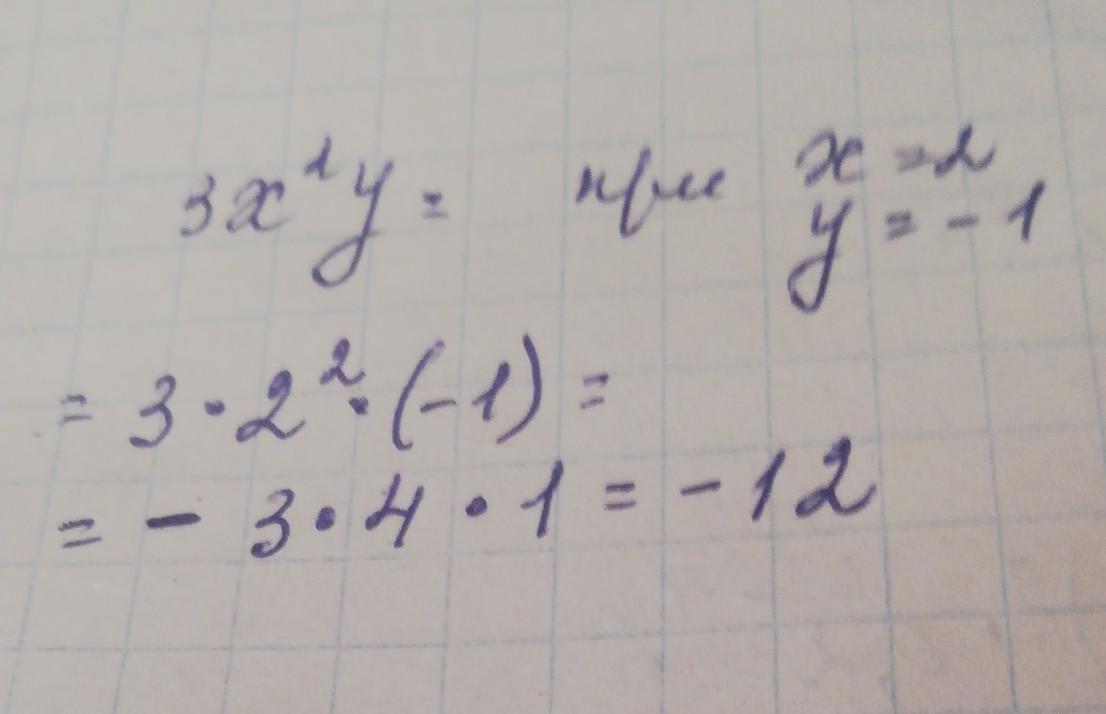 3x²y = при x = 2
y = - 1
= 3 · 2² · (-1) =
= - 3 · 4 · 1 = - 12